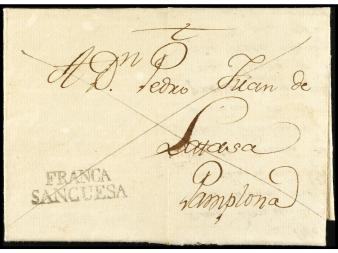 A D.n Pedro Juan de
Larasa
Pamplona
FRANCA
SANGUESA